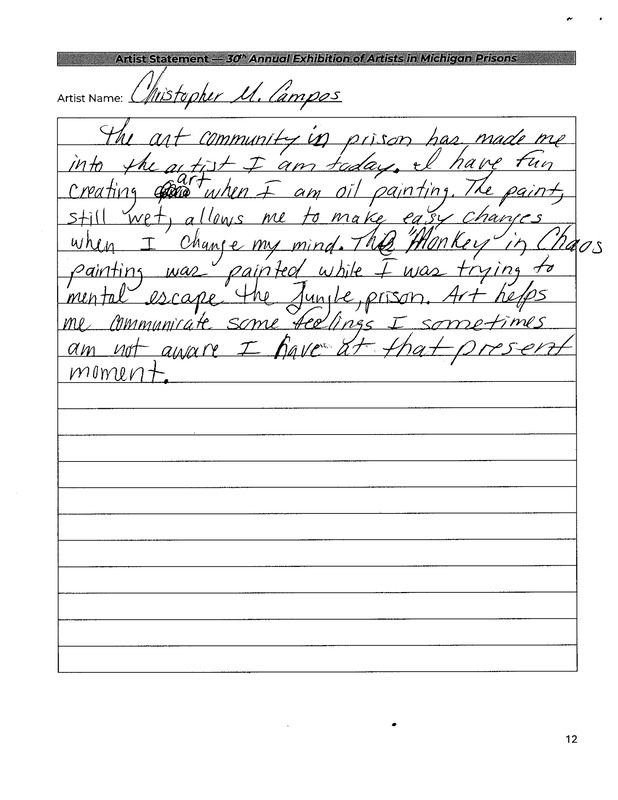 Artist Statement — 30th Annual Exhibition of Artists in Michigan Prisons
Artist Name: Christopher M. Campos
The art community in prison has made me
into the artist I am today. I have fun
creating art when I am oil painting. The paint,
still wet, allows me to make easy changes
when I change my mind. The "Monkey in Chaos
painting was painted while I was trying to
mental escape the Jungle, prison. Art helps
me communicate some feelings I sometimes
am not aware I have at that present
moment.
12